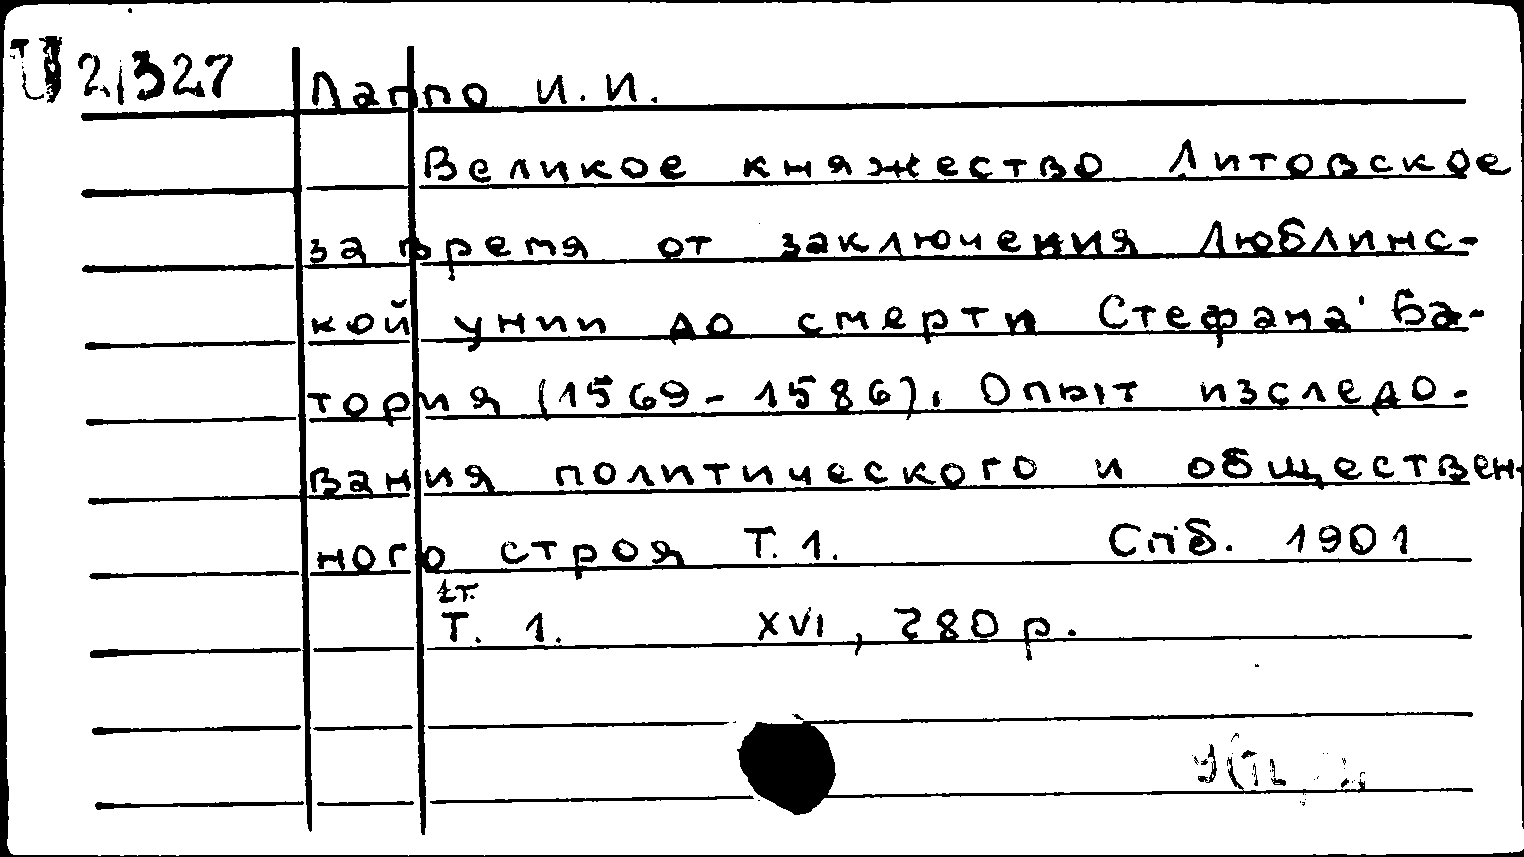 U 21327 Лаппо И. И.
Великое княжество Литовское
за время от заключения Люблинс-
кой унии до смерти Стефана Ба-
тория (1569-1586). Опыт изследо-
вания политического и обществен-
ного строя Т. 1. Спб. 1901
1 т.
Т. 1. XVI, 280 р.